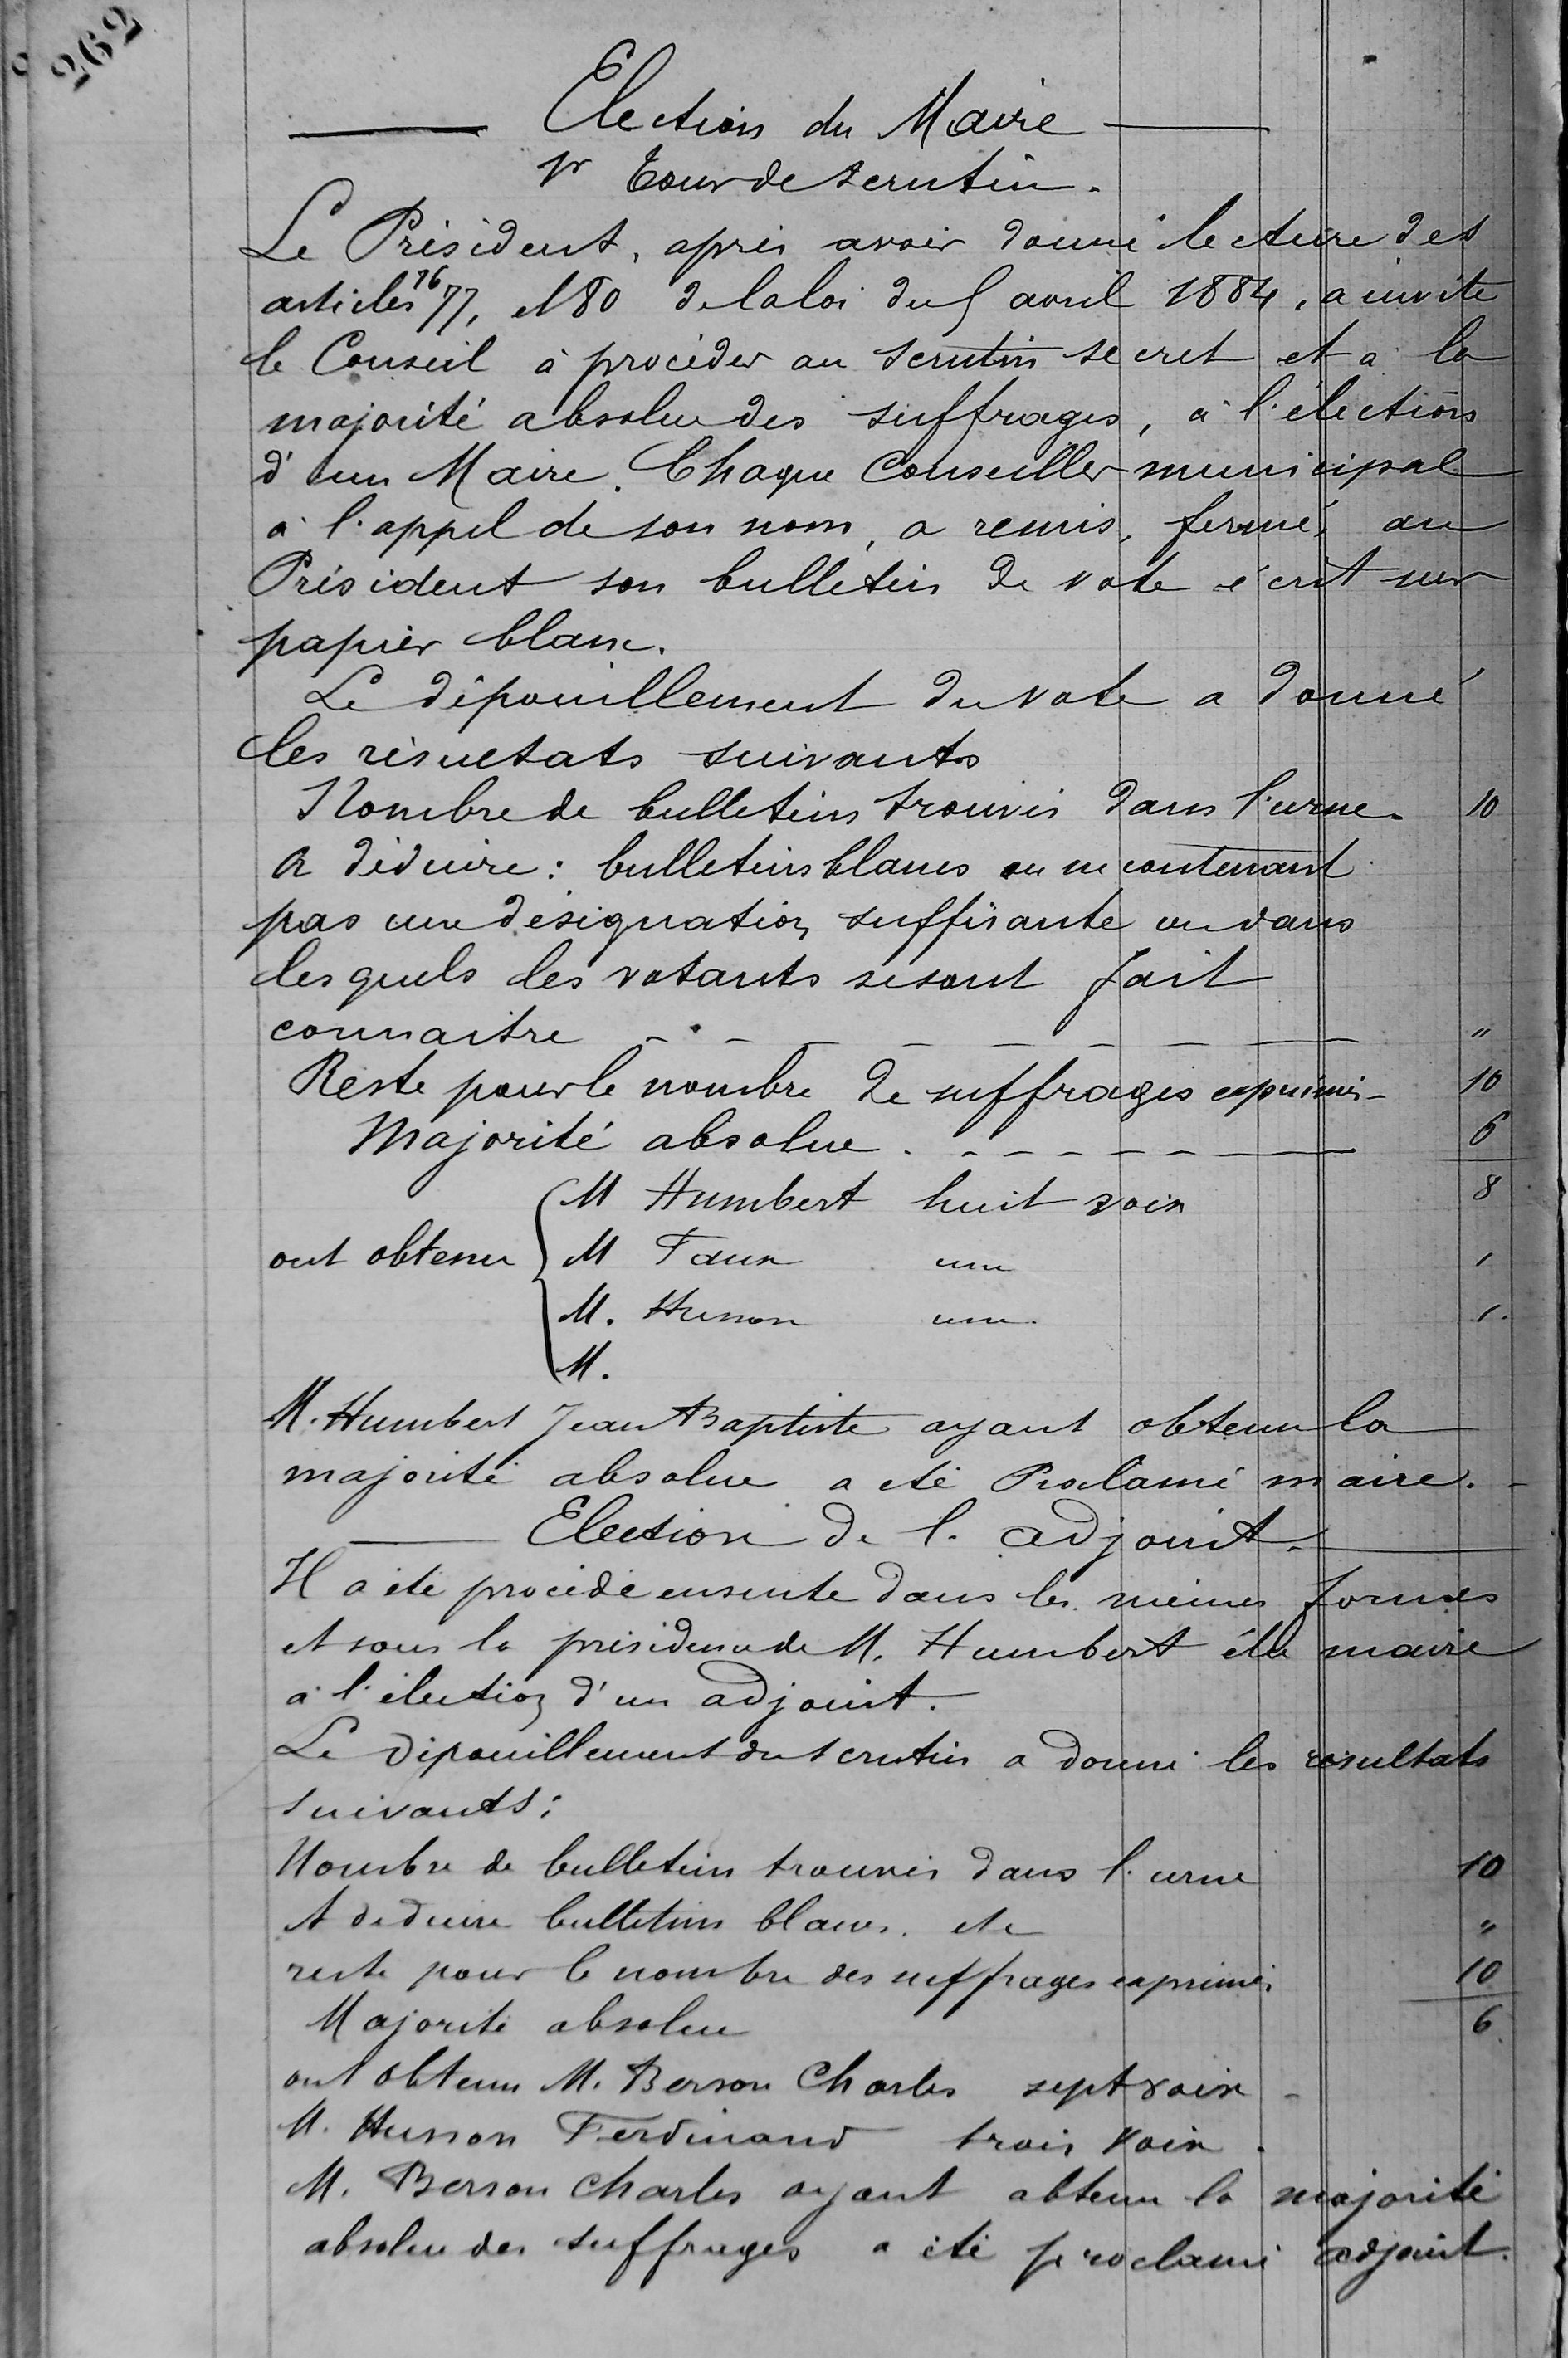 262
Election du Maire
1r Tour de scrutin.
Le Président, après avoir donné lecture des
articles 76 77, et 80 de la loi du 5 avril 1884, a invité
le Conseil à procéder au scrutin secret et à la
majorité absolue des suffrages, à l'élection
d'un Maire. Chaque Conseiller municipal
à l'appel de son nom, a remis, fermé, au
Président son bulletin de vote écrit sur
papier blanc.
Le dépouillement du vote a donné
les résultats suivants
Nombre de bulletins trouvés dans l'urne. 10
A déduire : bulletins blancs ou ne contenant
pas une désignation suffisante ou dans
lesquels les votants se sont fait
connaitre - - - - - - - - "
Reste pour le nombre de suffrages exprimés - 10
Majorité absolue . - - - - - - 6
M Humbert huit voix 8
ont obtenu M Faux une 1
M. Husson une 1.
M.
M. Humbert Jean Baptiste ayant obtenu la
majorité absolue a été Proclamé maire. -
Election de l'adjoint.
Il a été procédé ensuite dans les mêmes formes
et sous la présidence de M. Humbert élu maire
à l'élection d'un adjoint.
Le dépouillement du scrutin a donné les résultats
suivants :
Nombre de bulletins trouvés dans l'urne 10
A déduire bulletins blancs. etc "
reste pour le nombre des suffrages exprimés 10
Majorité absolue 6
ont obtenu M. Berson Charles sept voix -
M. Husson Ferdinand trois voix .
M. Berson Charles ayant obtenu la majorité
absolue des suffrages a été proclamé adjoint.